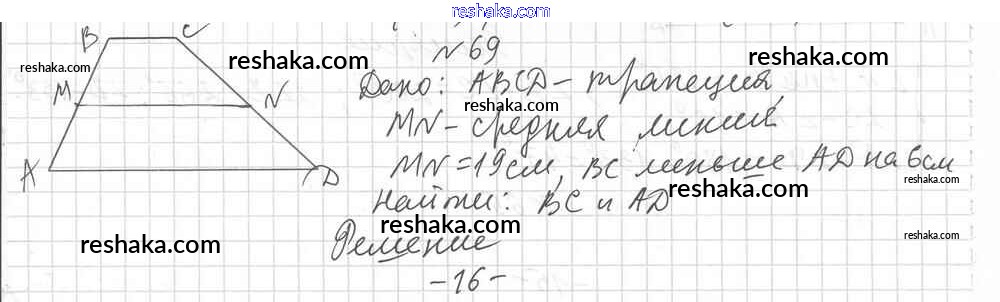 reshaka.com
№69
B C
reshaka.com
reshaka.com
reshaka.com
Дано: ABCD - трапеция,
M N
reshaka.com
MN - средняя линия
reshaka.com
MN = 19 см, BC меньше AD на 6 см
A D
reshaka.com
reshaka.com
Найти: BC и AD
reshaka.com
reshaka.com
reshaka.com
Решение
-16-